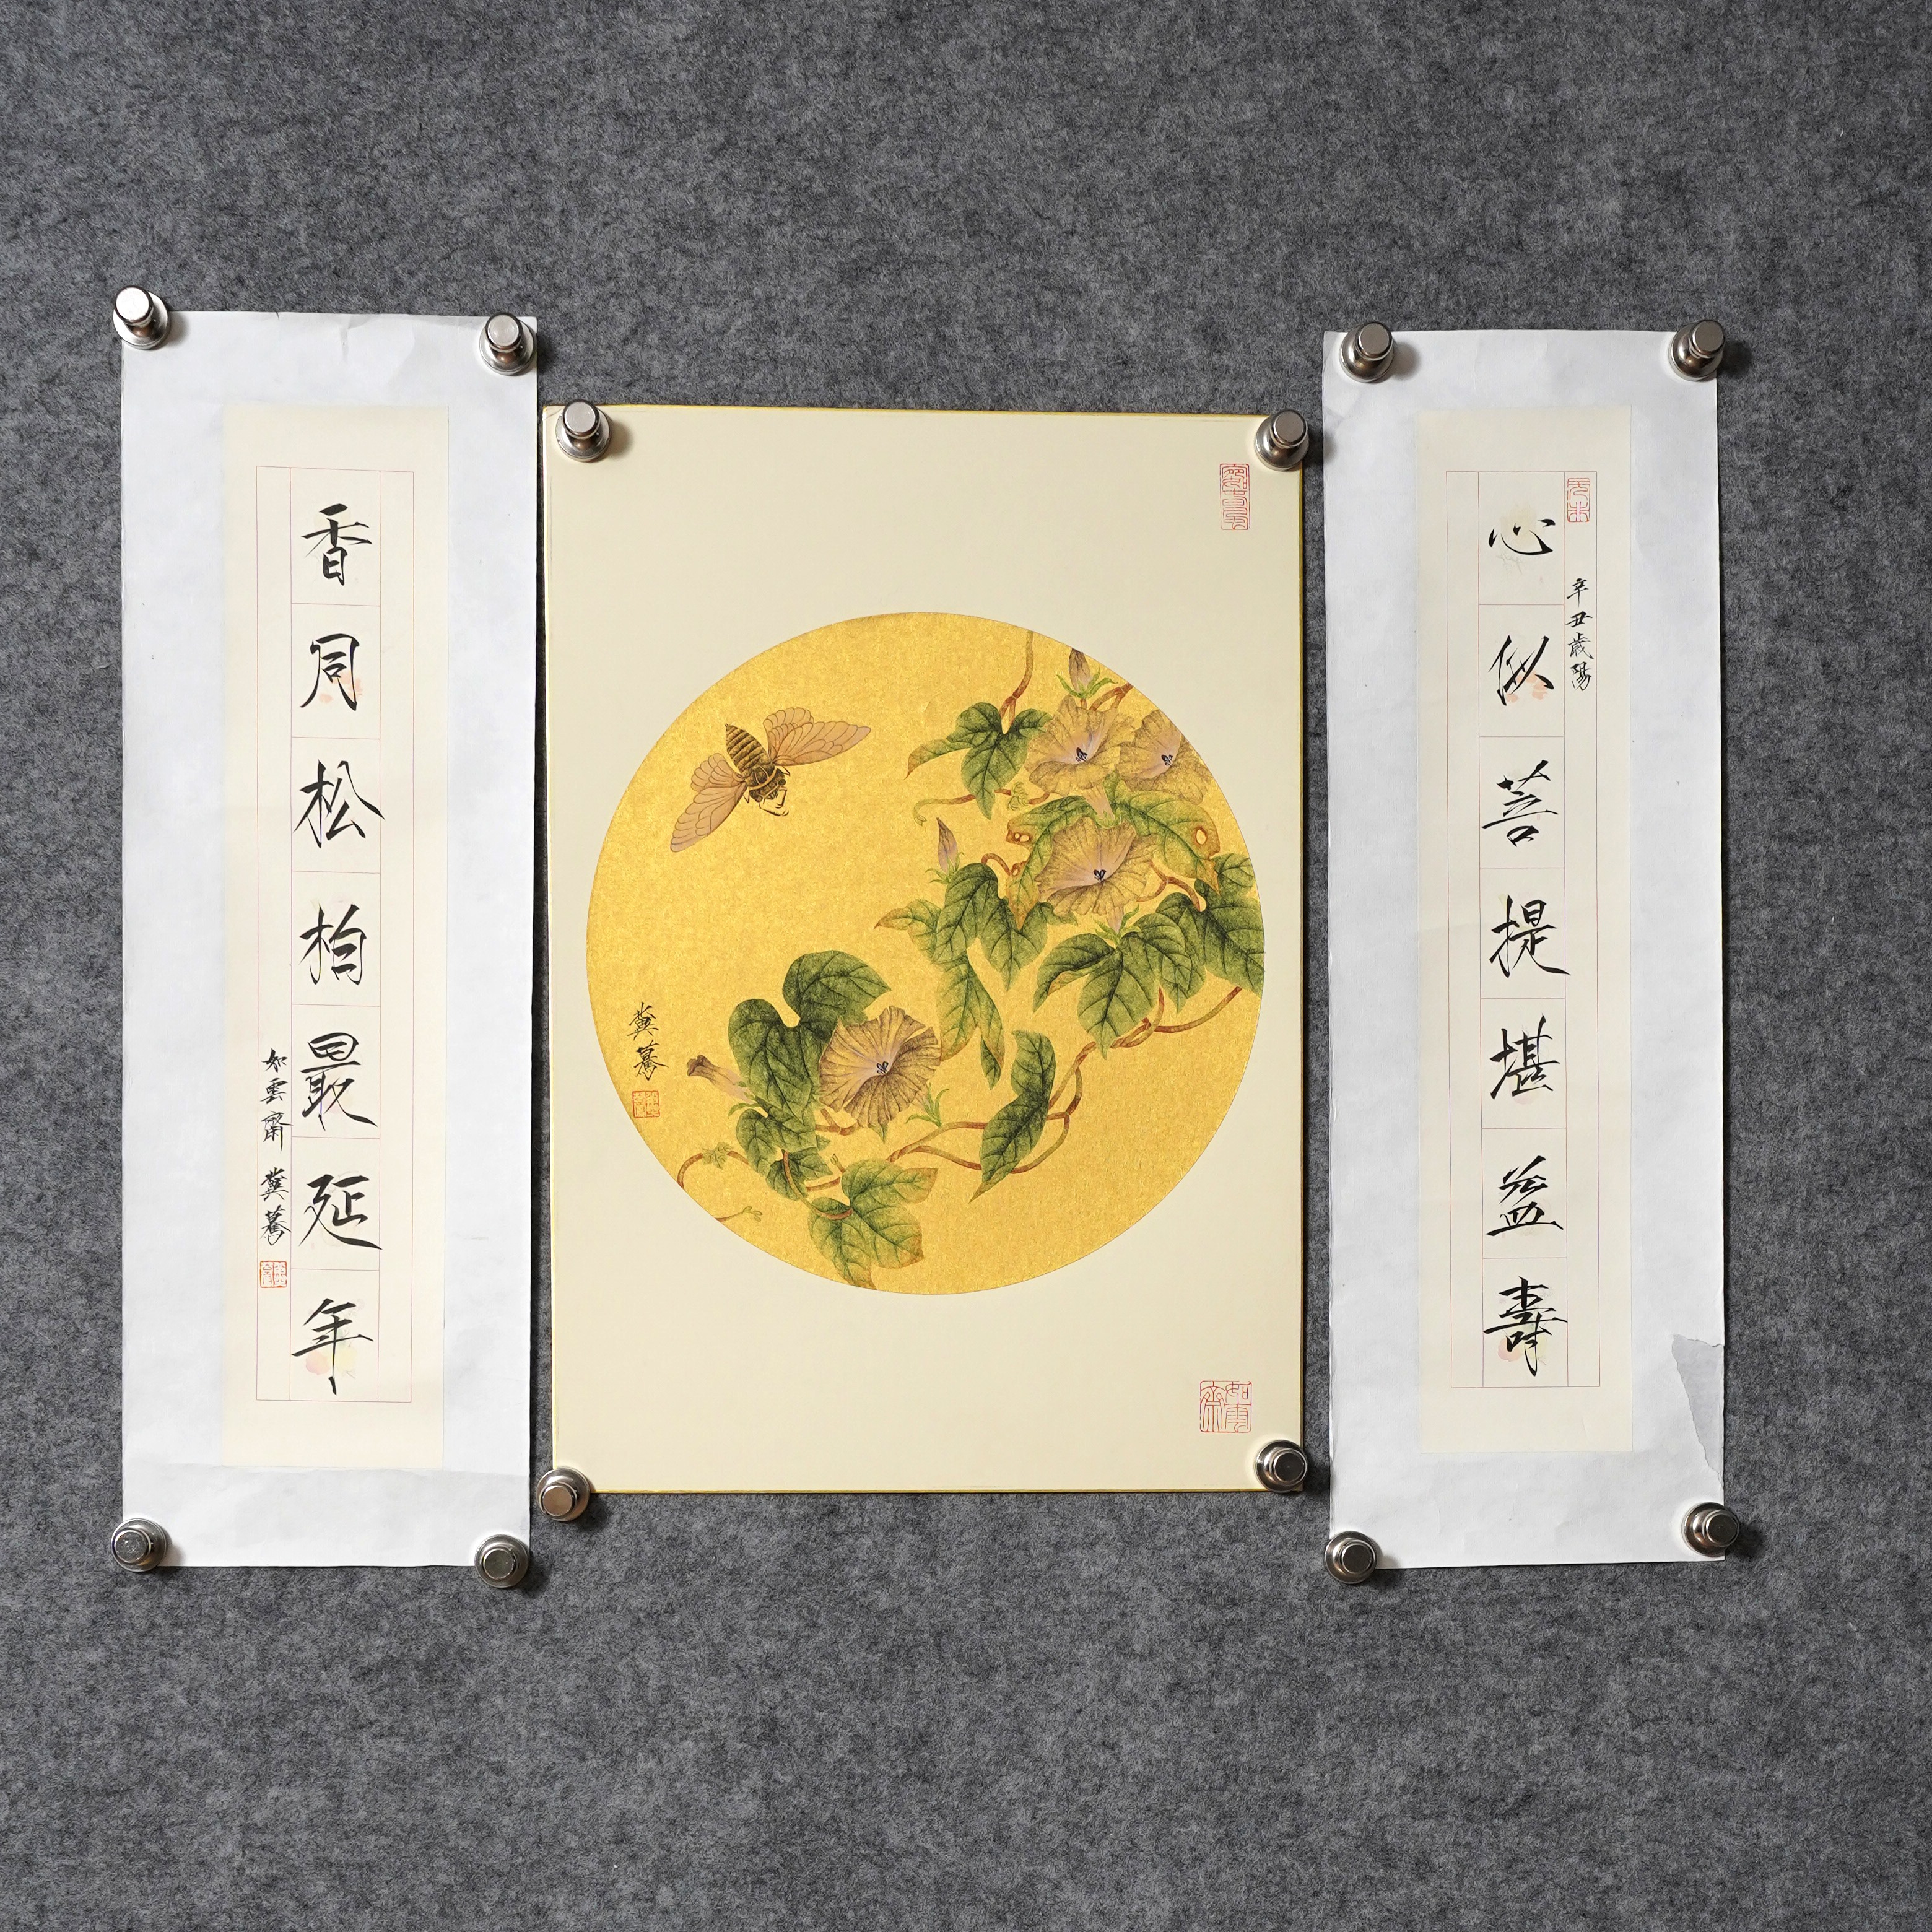 辛丑歲陽
心似菩提堪益壽
冀蓦
如雲齋
香同松柏最延年
如雲齋 冀蓦